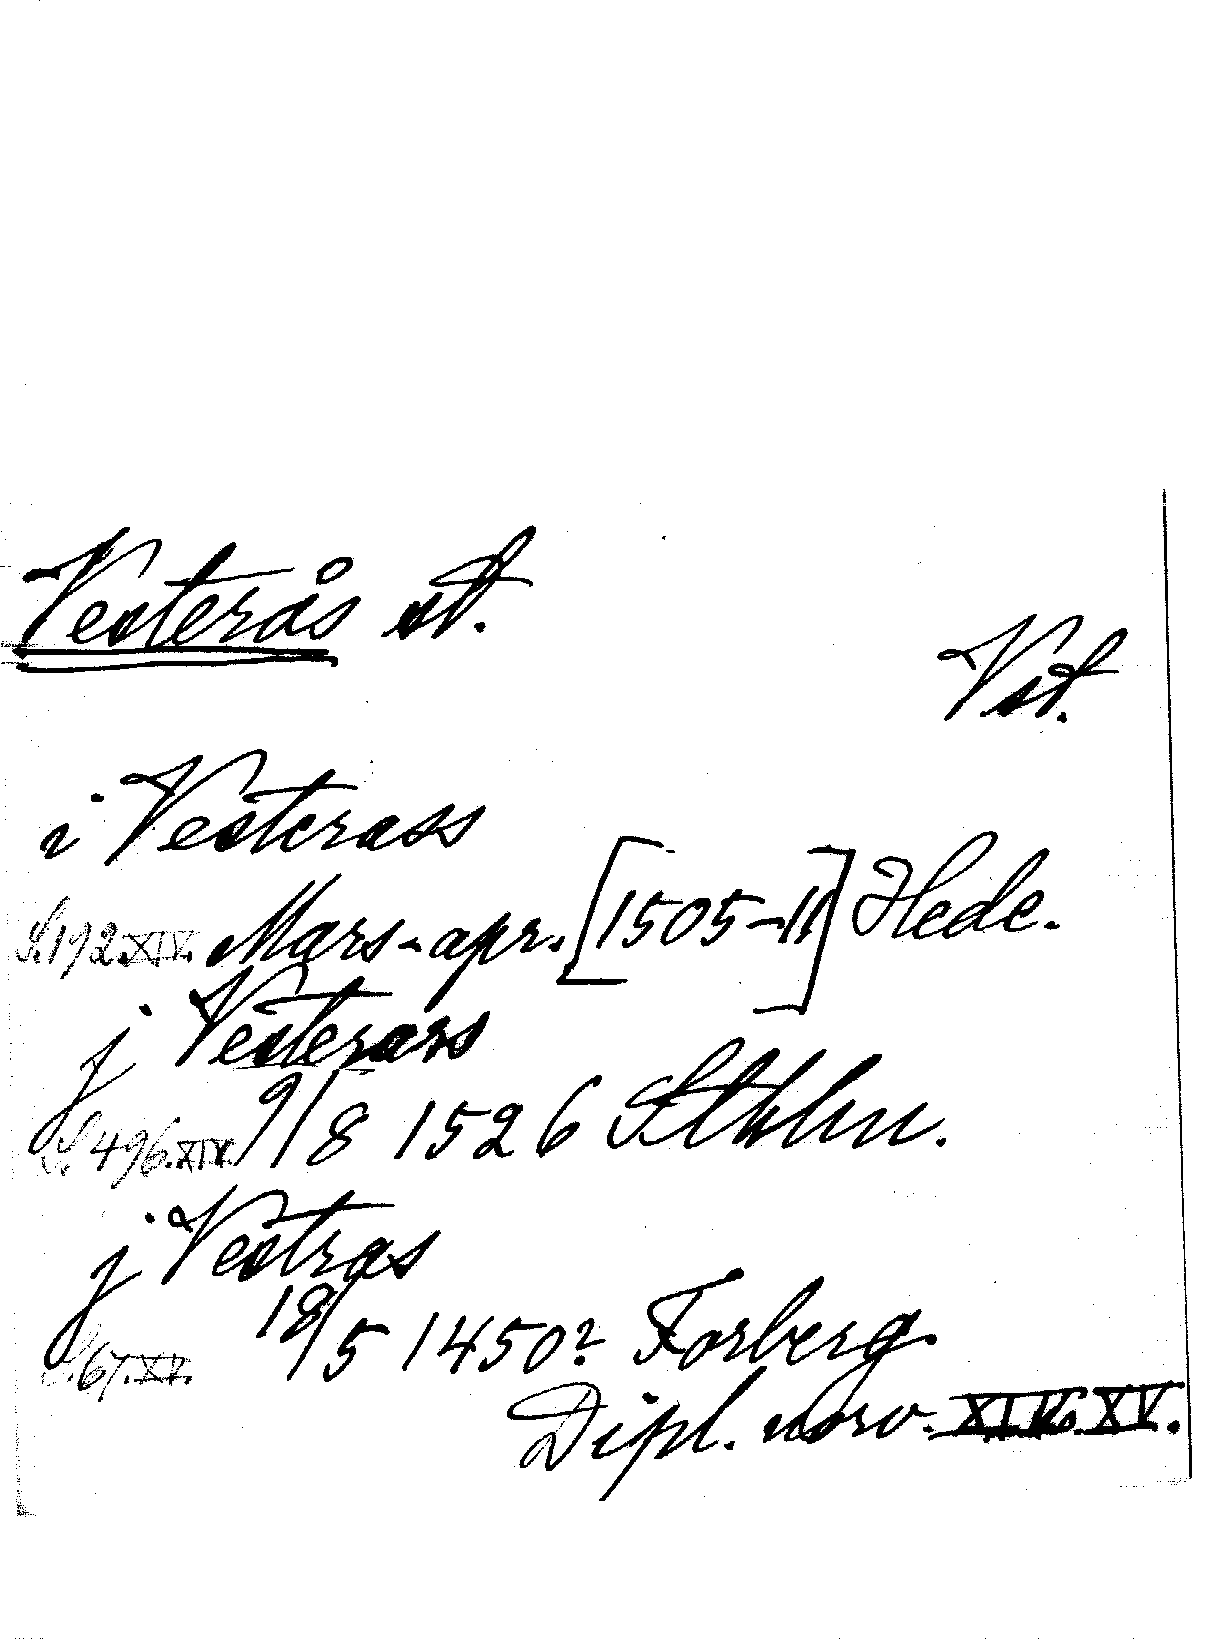 Vesterås st.
Vst.
i Vesterass
S. 192. XIV. Mars-apr. [1505-11] Hede.
j Vesterars
S. 496. XIV. 9/8 1526 Sthlm.
j Vestras
S. 67. XV. 18/5 1450? Forberg.
Dipl. norv. XIV o. XV.